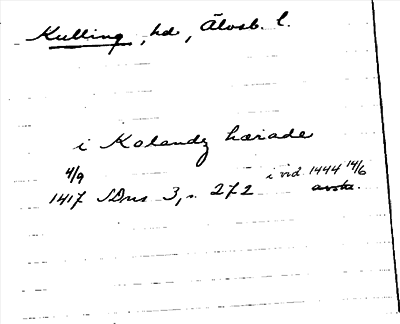 Kulling, hd, Älvsb. l.
i Kolandz hærade
4/9 1417 SDns 3, s. 272 i vid. 1444 14/6
avskr.